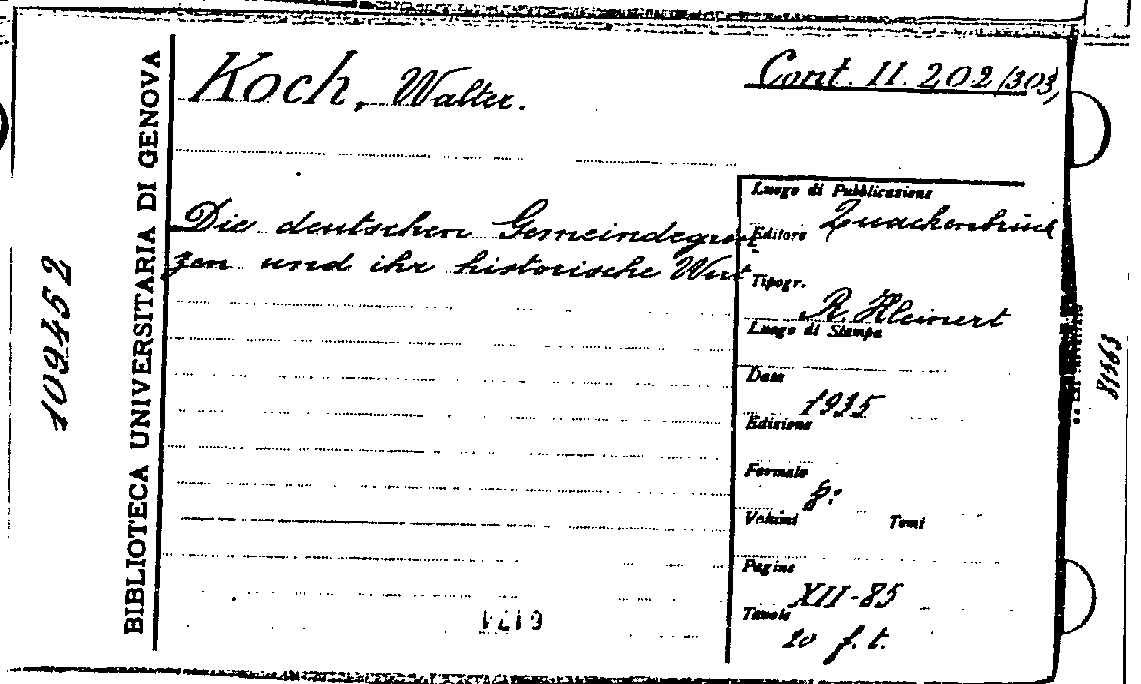 Koch, Walter.
Cont. II. 202/303,
Die deutschen Gemeindegren-
zen und ihr historische Wert
Luogo di Pubblicazione
Quackenbrück
Editore
Tipogr.
R. Kleinert
Luogo di Stampa
Data
1935
Edizione
Formato
8:
Volumi Tomi
Pagine
XII-85
Tavole
20 f. t.
BIBLIOTECA UNIVERSITARIA DI GENOVA
109452